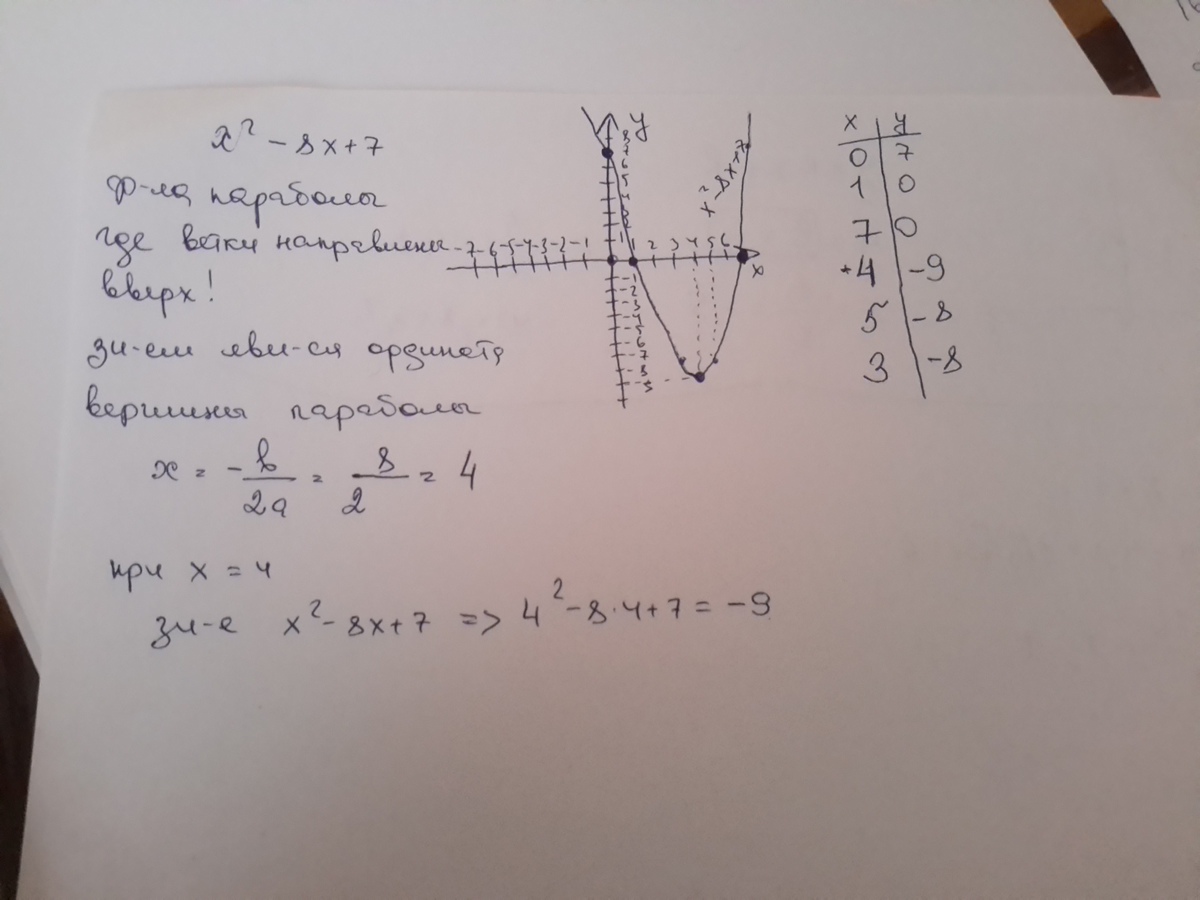 x² - 8x + 7
ф-ла параболы
где ветки направлены
вверх!
зн-ем яви-ся ордината
вершины параболы
x = -b/2a = 8/2 = 4
при x = 4
зн-е x² - 8x + 7 => 4² - 8·4 + 7 = -9
y
8
7
6
5
4
3
2
1
-7 -6 -5 -4 -3 -2 -1 1 2 3 4 5 6
x
-1
-2
-3
-4
-5
-6
-7
-8
-9
x² - 8x + 7
x y
0 7
1 0
7 0
4 -9
5 -8
3 -8